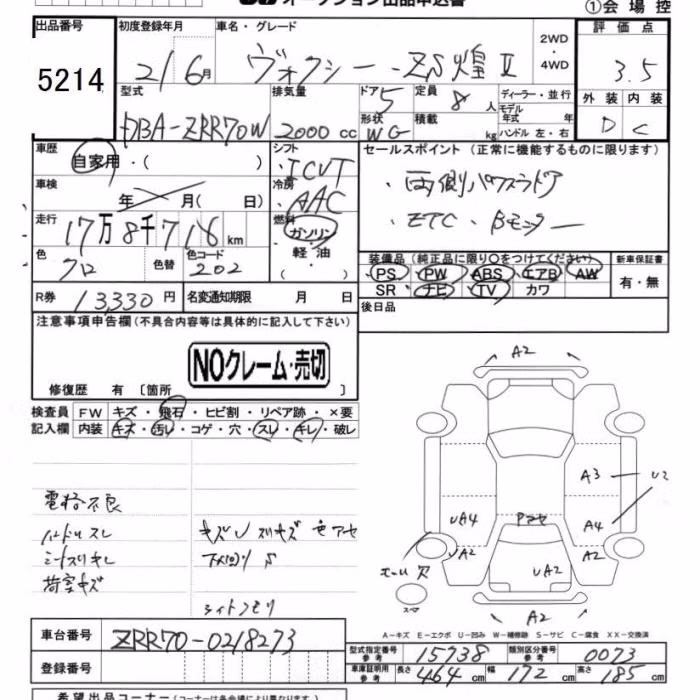 オークション出品申込書 ①会場控
出品番号 初度登録年月 車名・グレード 2WD・4WD 評価点
5214 21年6月 ヴォクシー・ZS煌Ⅱ 3.5
型式 排気量 ドア 定員 ディーラー・並行 外装 内装
DBA-ZRR70W 2000cc 5 8人 モデル年式 年 D C
形状 WG 積載 kg ハンドル 左・右
車歴 自家用・( ) シフト ・ICVT セールスポイント (正常に機能するものに限ります)
車検 年 月( 日) 冷房 ・AAC ・両側パワスラドア
走行 17万8千716km 燃料 ガソリン・軽油・( ) ・ETC・Bモニター
色 クロ 色替 色コード 202 装備品 (純正品に限り○をつけてください) 新車保証書
PS PW ABS エアB AW 有・無
R券 13,330円 名変通知期限 月 日 SR ナビ TV カワ
注意事項申告欄(不具合内容等は具体的に記入して下さい) 後日品
NOクレーム・売切
修復歴 有〔箇所 〕
検査員 FW キズ・飛石・ヒビ割・リペア跡・×要
記入欄 内装 キズ・汚レ・コゲ・穴・スレ・キレ・破レ
A2
A3 U2
UA4 Pアセ A4
UA2 A2
UA2
エール欠
スペア
A2
電格不良
ハンドルスレ キズU スリキズ 色アセ
シートスリキレ 下メ(回り)S
荷室キズ
ライトクモリ
A-キズ E-エクボ U-凹み W-補修跡 S-サビ C-腐食 XX-交換済
車台番号 ZRR70-0218273
型式指定番号 参考 15738 類別区分番号 参考 0073
登録番号 車庫証明用 参考 長さ 464cm 幅 172cm 高さ 185cm
希望出品コーナー(コーナーは各会場により